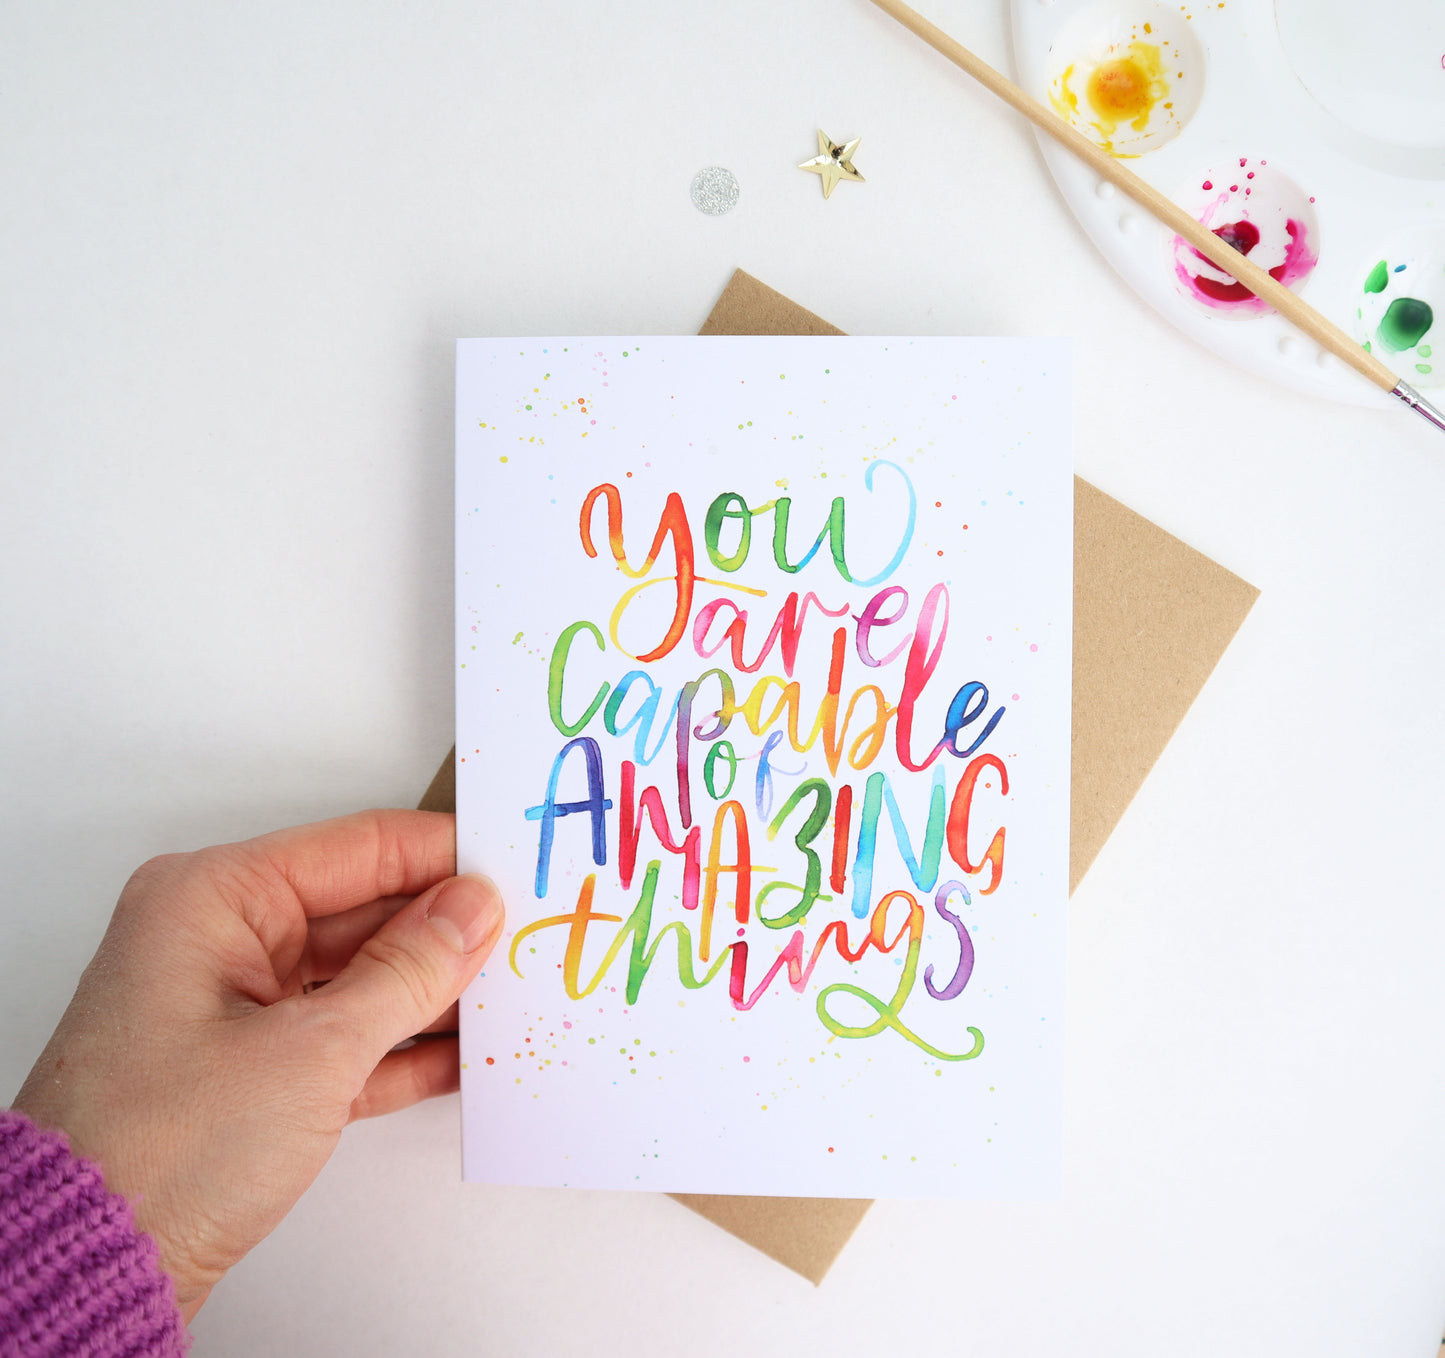 you
are
capable
of
AMAZING
things